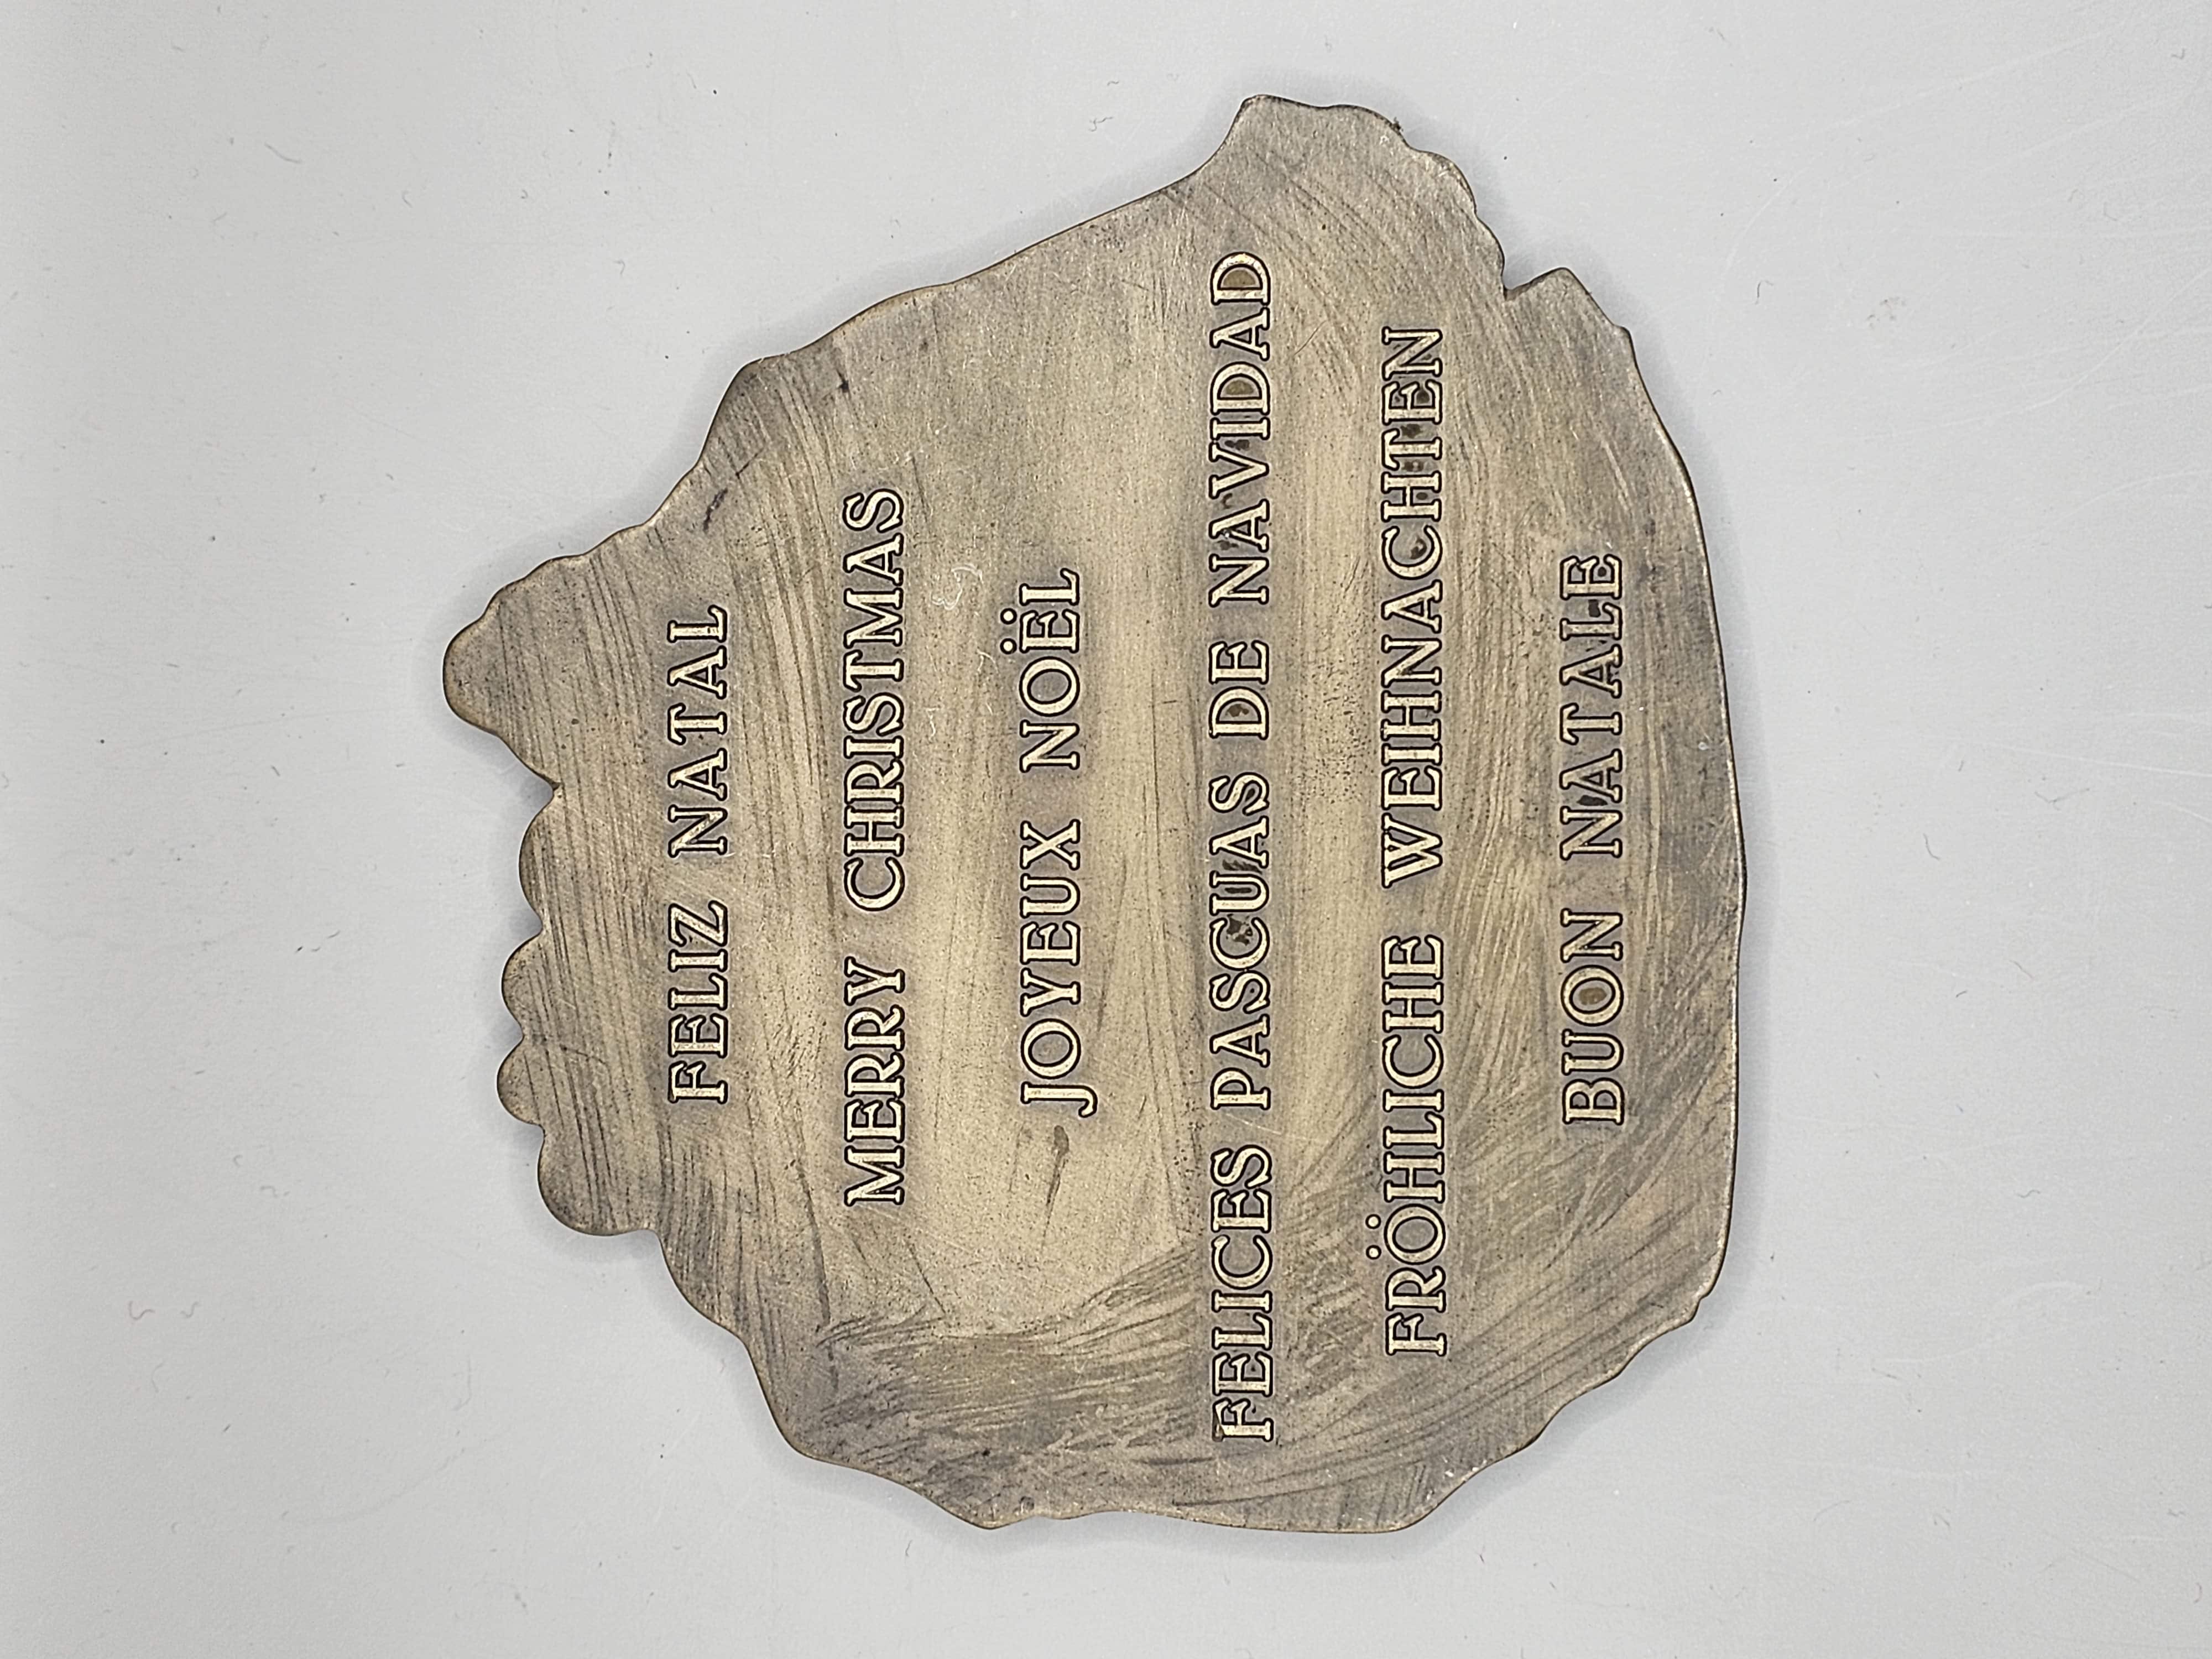 FELIZ NATAL
MERRY CHRISTMAS
JOYEUX NOËL
FELICES PASCUAS DE NAVIDAD
FRÖHLICHE WEIHNACHTEN
BUON NATALE